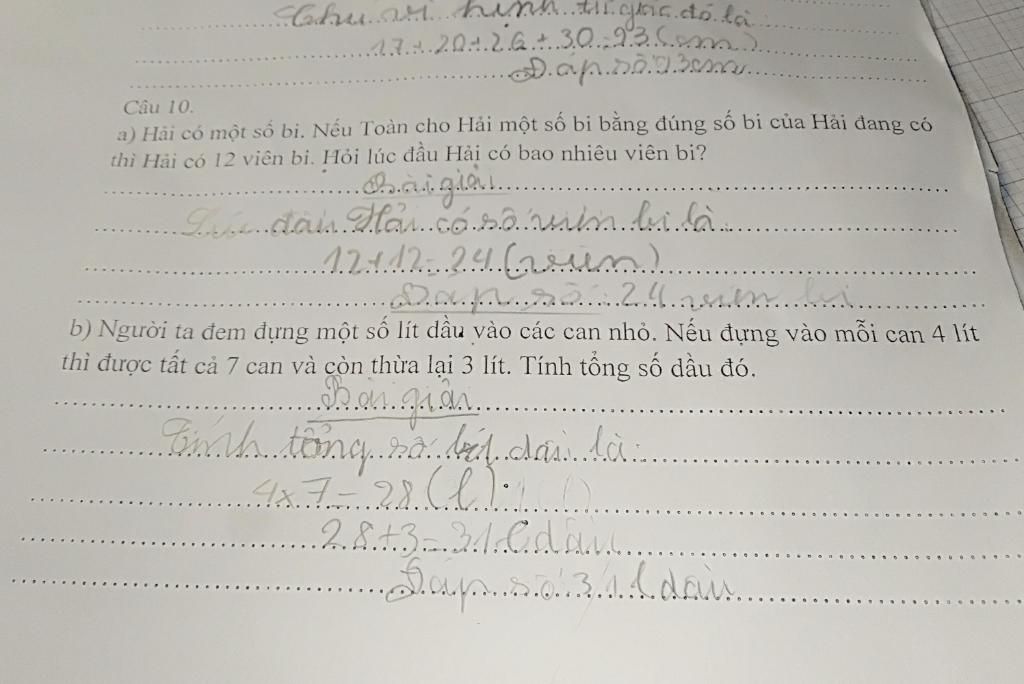 Chu vi hình tứ giác đó là
17+20+26+30=93(cm)
Đáp số 93cm
Câu 10.
a) Hải có một số bi. Nếu Toàn cho Hải một số bi bằng đúng số bi của Hải đang có
thì Hải có 12 viên bi. Hỏi lúc đầu Hải có bao nhiêu viên bi?
Bài giải
Lúc đầu Hải có số viên bi là
12+12=24(viên)
Đáp số: 24 viên bi
b) Người ta đem đựng một số lít dầu vào các can nhỏ. Nếu đựng vào mỗi can 4 lít
thì được tất cả 7 can và còn thừa lại 3 lít. Tính tổng số dầu đó.
Bài giải
Tính tổng số lít dầu là:
4x7=28(l)
28+3=31 l dầu
Đáp số 31 l dầu